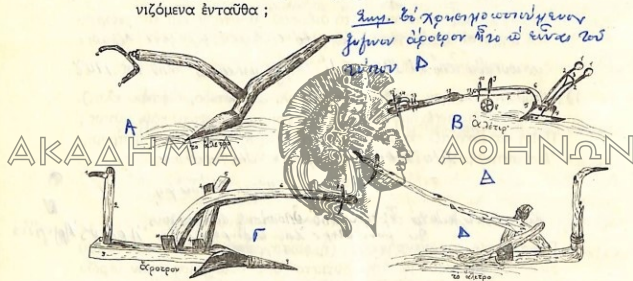 νιζόμενα ἐνταῦθα ;
Σημ. Τὸ χρησιμοποιούμενον
ξύλινον ἄροτρον ἦτο
τύπου Δ
Α
Β
τὸ ἀλέτρι
ΑΚΑΔΗΜΙΑ ΑΘΗΝΩΝ
Γ
Δ
Δ
ἄροτρον
τὸ ἀλετρο